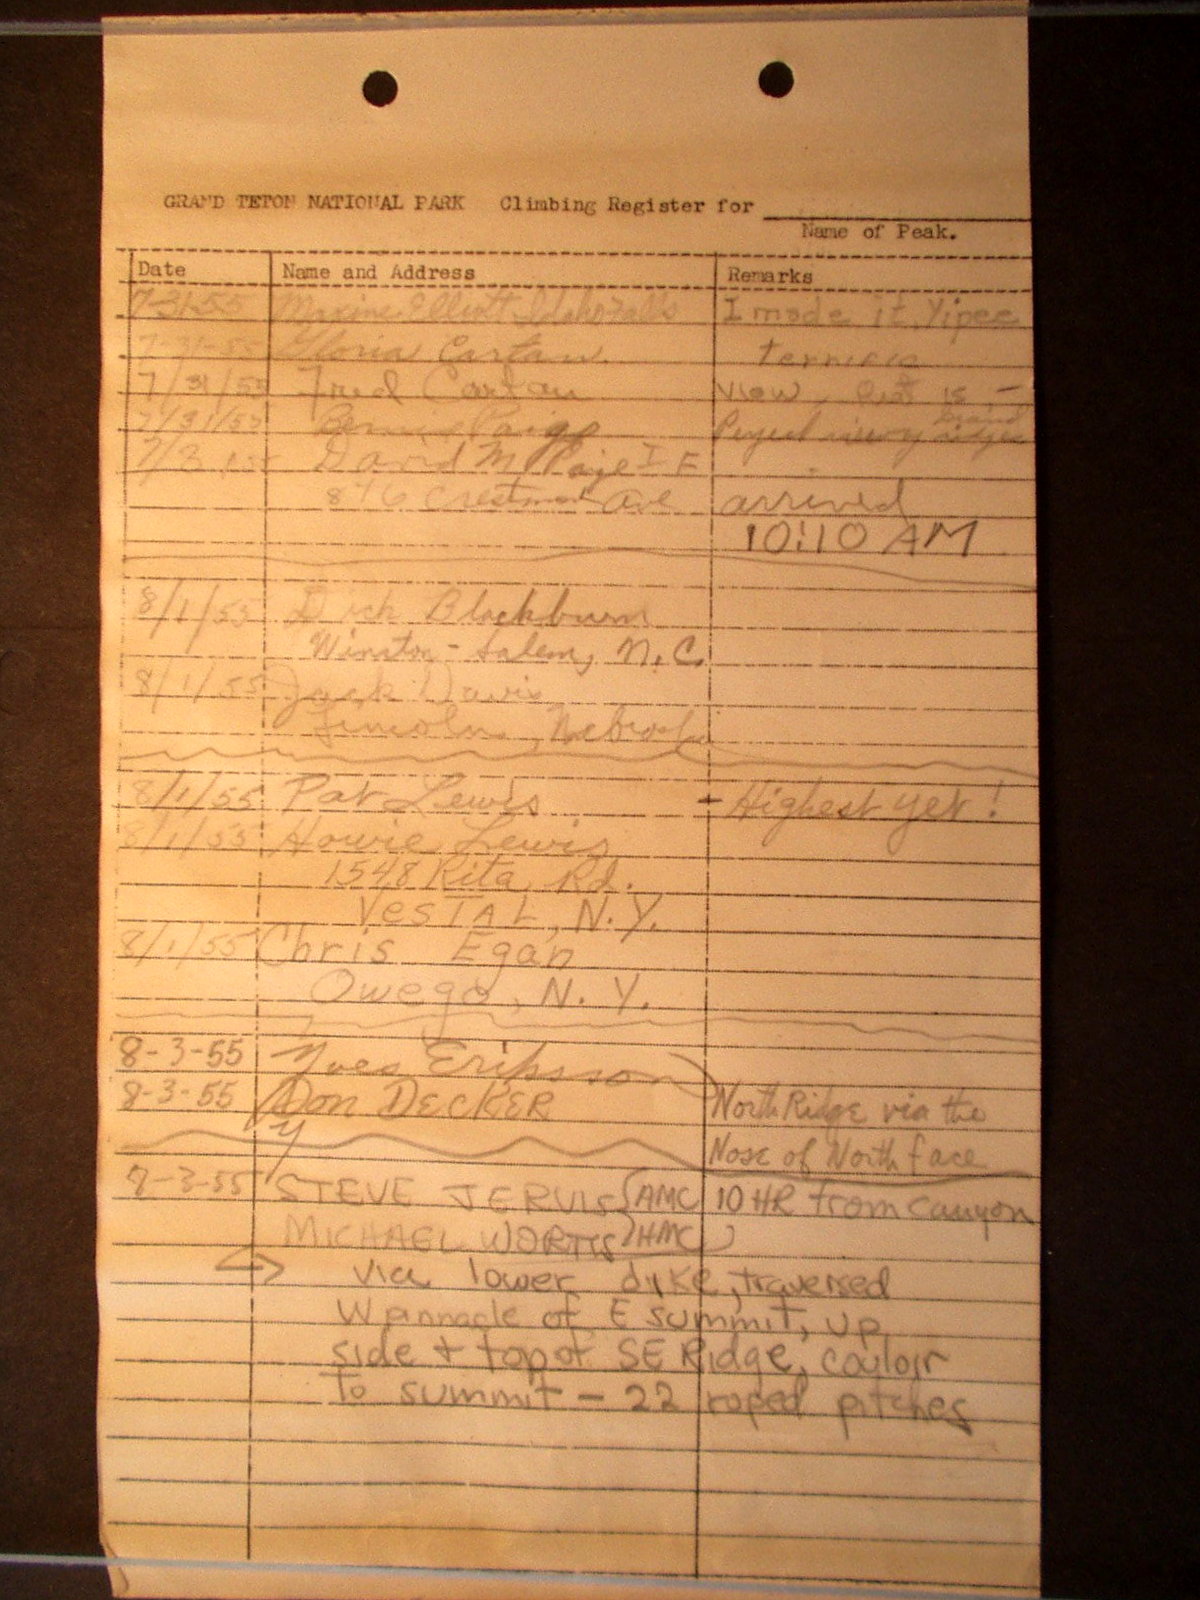 GRAND TETON NATIONAL PARK Climbing Register for
Name of Peak.
Date Name and Address Remarks
7-31-55 Maxine Elliott Idaho Falls I made it, Yipee
7-31-55 Gloria Cartan
7/31/55 Fred Cartan View is
7/31/55 Paige Project
7/3 David M Paige I F
876 Crestmont Ave arrived
10:10 AM
8/1/55 Dick Blackburn
Winston-Salem, N.C.
8/1/55 Jack Davis
Lincoln, Nebrask
8/1/55 Pat Lewis - Highest yet!
8/1/55 Howie Lewis
1548 Rita Rd.
VESTAL, N.Y.
8/1/55 Chris Egan
Owego, N.Y.
8-3-55 Yves Eriksson
8-3-55 Don DECKER North Ridge via the
Nose of North face
8-3-55 STEVE JERVIS (AMC 10 HR from canyon
MICHAEL WORTIS HMC)
via lower dyke, traversed
W pinnacle of E summit, up
side + top of SE Ridge, couloir
to summit - 22 roped pitches